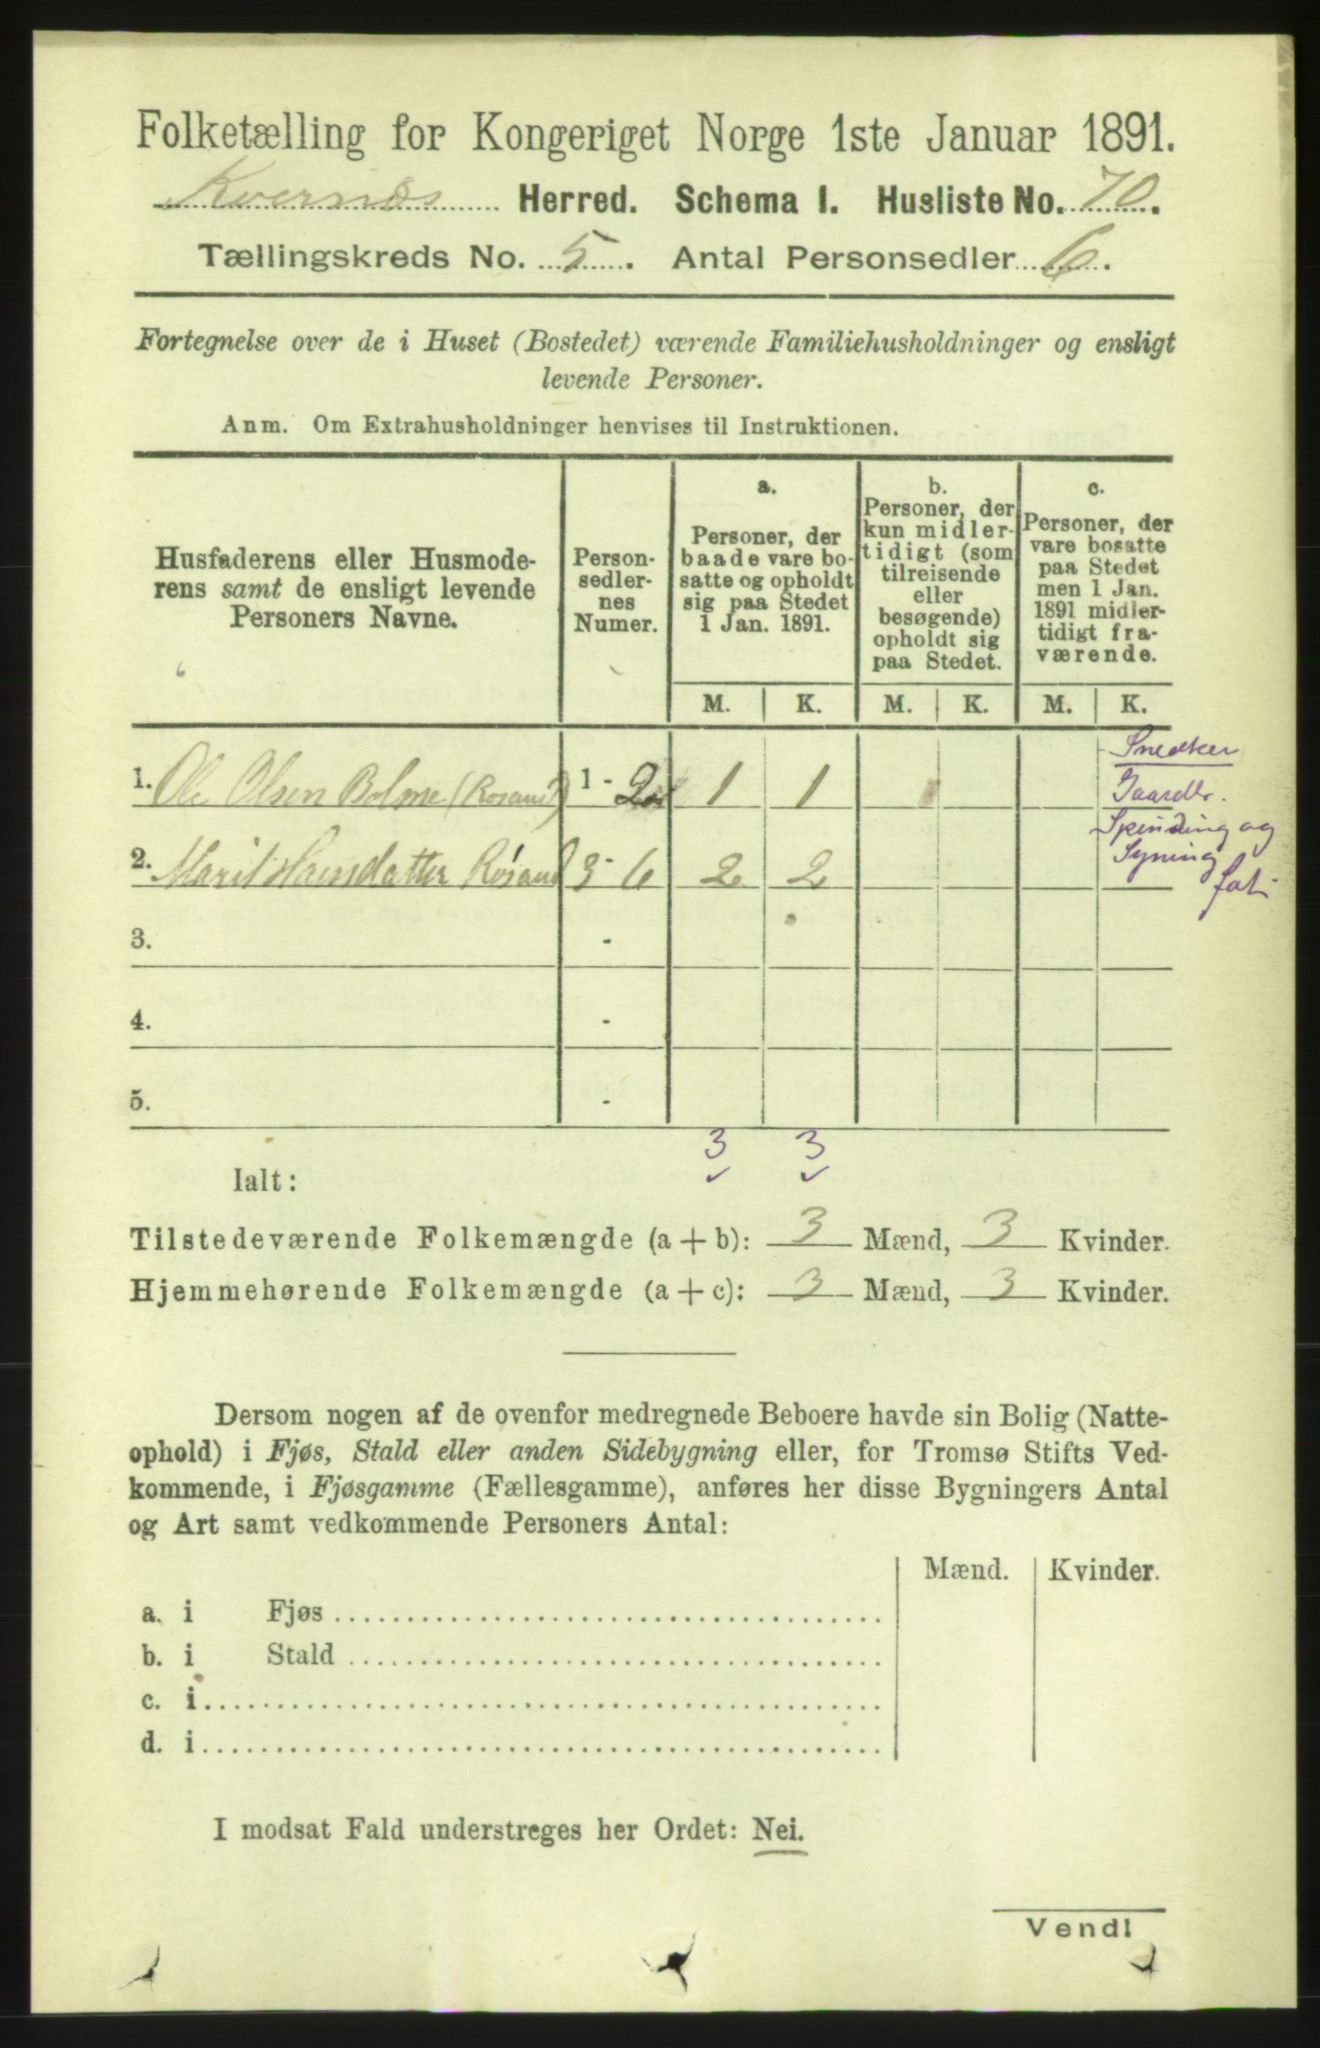 Folketælling for Kongeriget Norge 1ste Januar 1891.
Kvernæs Herred. Schema I. Husliste No. 70.
Tællingskreds No. 5. Antal Personsedler 6.
Fortegnelse over de i Huset (Bostedet) værende Familiehusholdninger og ensligt
levende Personer.
Anm. Om Extrahusholdninger henvises til Instruktionen.
Husfaderens eller Husmode-
rens samt de ensligt levende
Personers Navne.
Person-
sedler-
nes
Numer.
a.
Personer, der
baade vare bo-
satte og opholdt
sig paa Stedet
1 Jan. 1891.
b.
Personer, der
kun midler-
tidigt (som
tilreisende
eller
besøgende)
opholdt sig
paa Stedet.
c.
Personer, der
vare bosatte
paa Stedet
men 1 Jan.
1891 midler-
tidigt fra-
værende.
M. K. M. K. M. K.
1. Ole Olsen Bolme (Rosand) 1 - 2 1 1
Snedker
Gaardbr.
2. Marit Hansdatter Røsand 3 - 6 2 2
Spinding og
Syning
fat.
3. -
4. -
5. -
3 3
Ialt:
Tilstedeværende Folkemængde (a + b): 3 Mænd, 3 Kvinder.
Hjemmehørende Folkemængde (a + c): 3 Mænd, 3 Kvinder.
Dersom nogen af de ovenfor medregnede Beboere havde sin Bolig (Natte-
ophold) i Fjøs, Stald eller anden Sidebygning eller, for Tromsø Stifts Ved-
kommende, i Fjøsgamme (Fællesgamme), anføres her disse Bygningers Antal
og Art samt vedkommende Personers Antal:
Mænd. Kvinder.
a. i Fjøs
b. i Stald
c. i
d. i
I modsat Fald understreges her Ordet: Nei.
Vend!